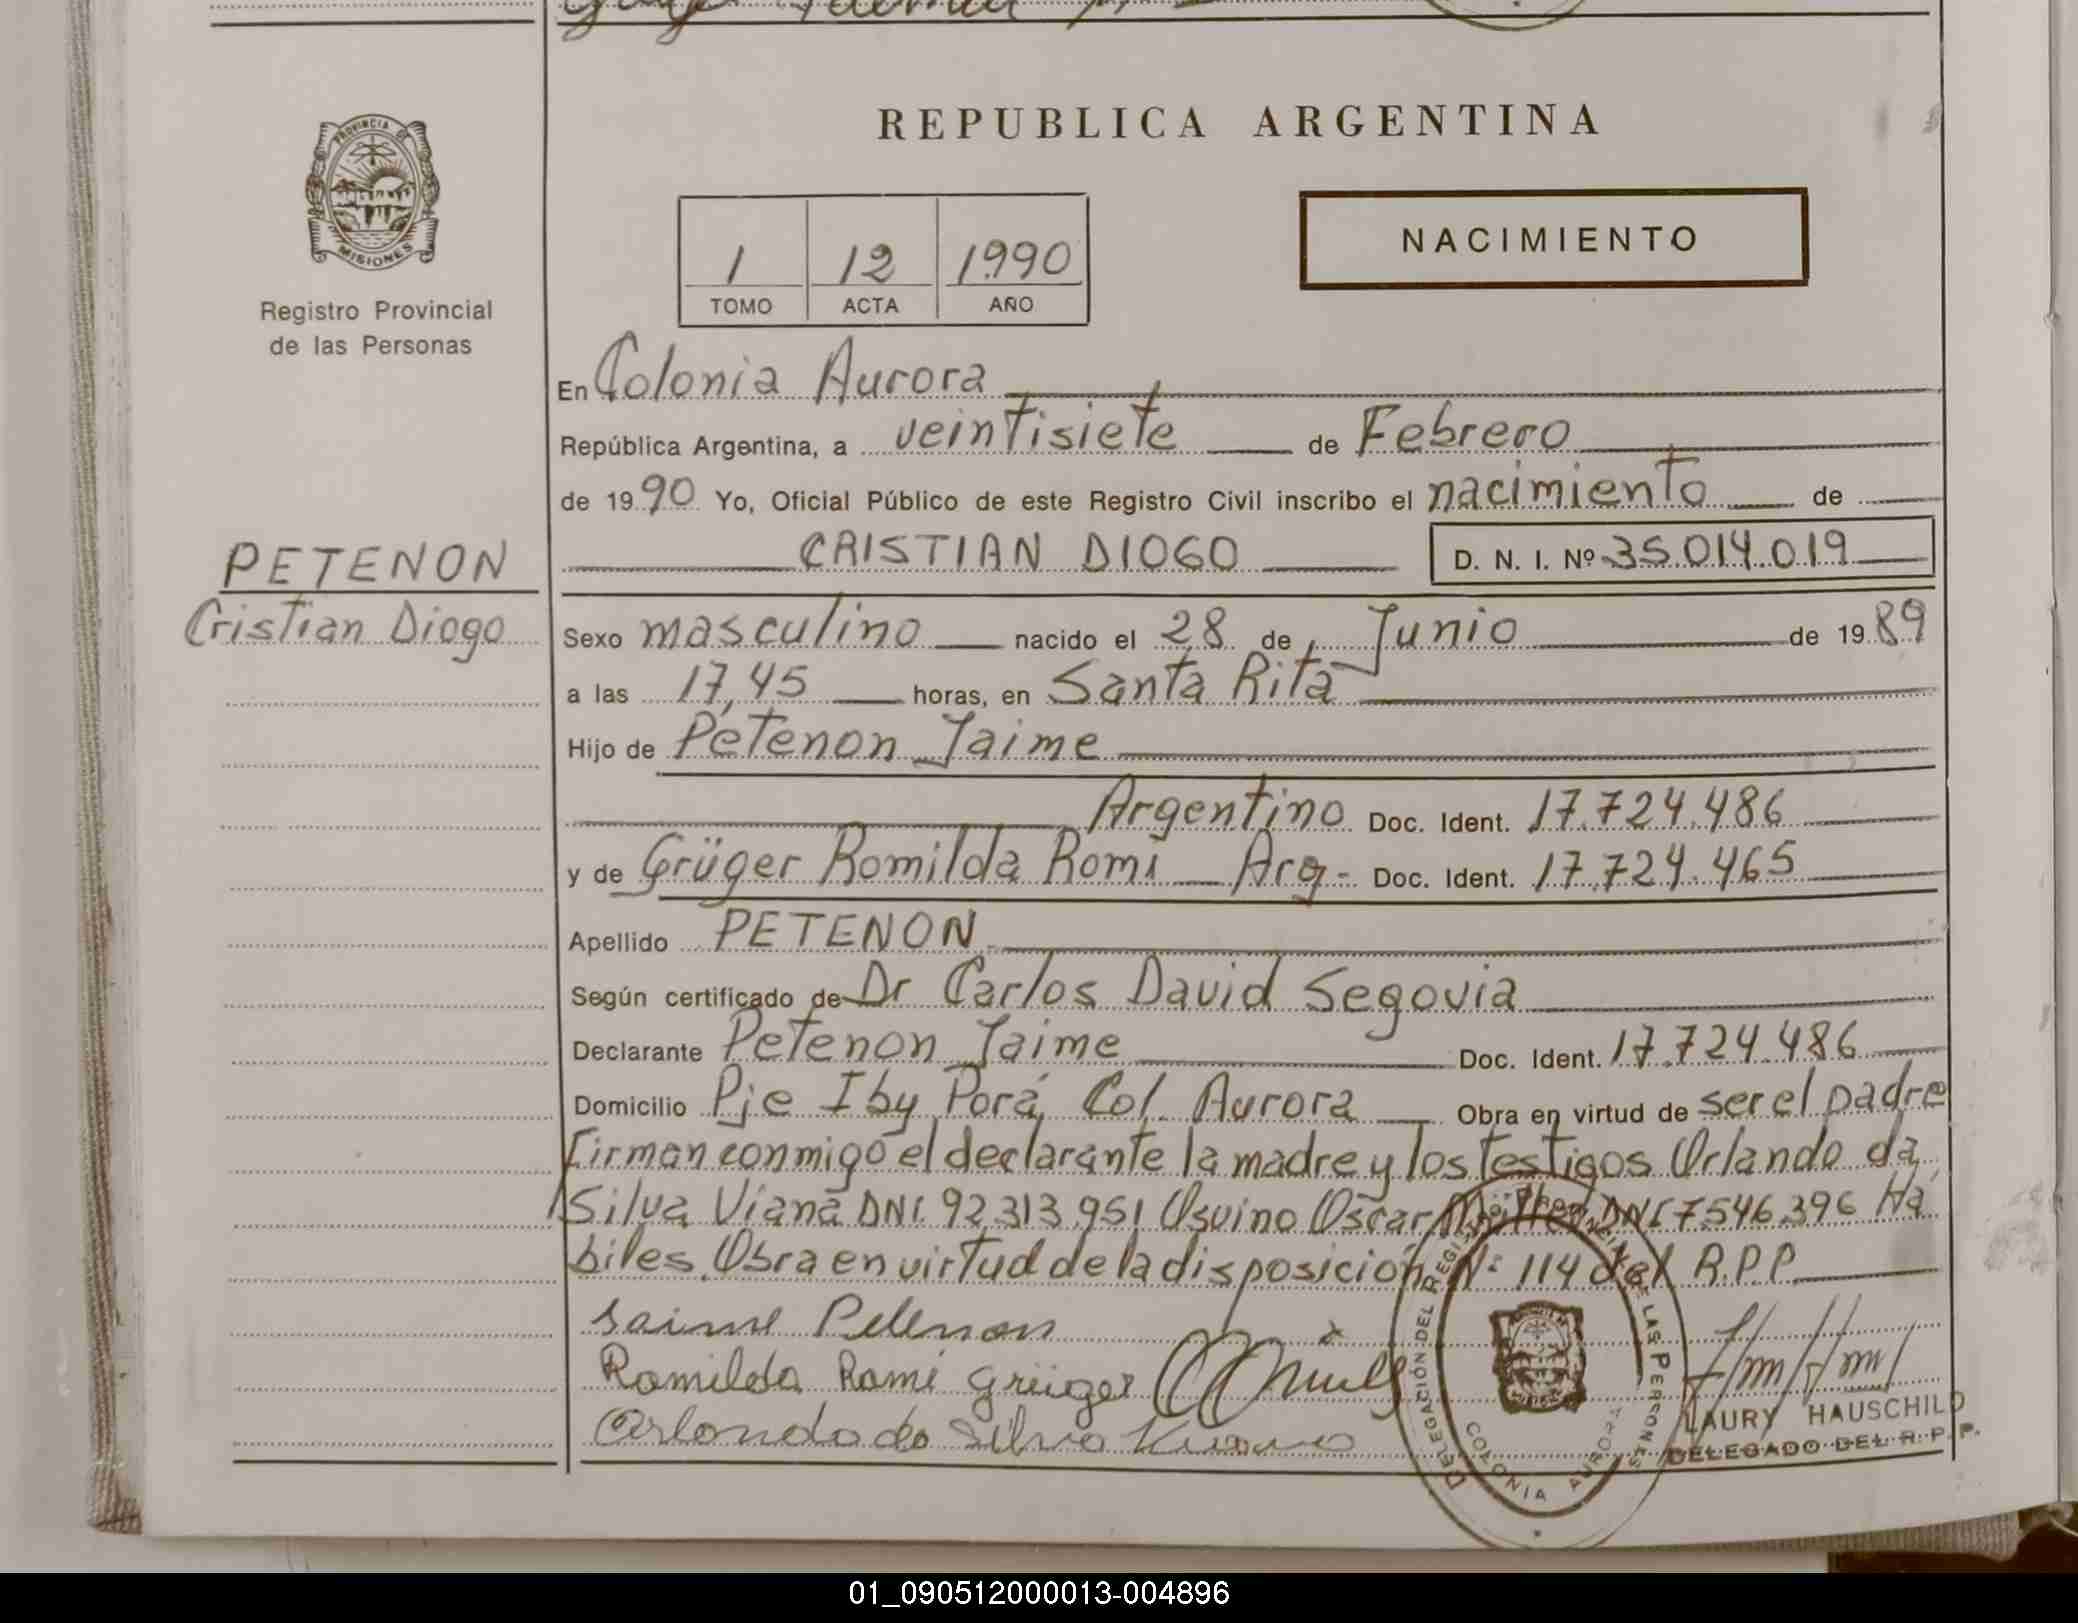 REPUBLICA ARGENTINA
PROVINCIA DE
MISIONES
Registro Provincial
de las Personas
1 12 1990
TOMO ACTA AÑO
NACIMIENTO
En Colonia Aurora
República Argentina, a veintisiete de Febrero
de 1990 Yo, Oficial Público de este Registro Civil inscribo el nacimiento de
CRISTIAN DIOGO D. N. I. Nº 35.014.019
PETENON
Cristian Diogo
Sexo masculino nacido el 28 de Junio de 1989
a las 17,45 horas, en Santa Rita
Hijo de Petenon Jaime
Argentino Doc. Ident. 17.724.486
y de Grüger Romilda Romi Arg- Doc. Ident. 17.724.465
Apellido PETENON
Según certificado de Dr Carlos David Segovia
Declarante Petenon Jaime Doc. Ident. 17.724.486
Domicilio Pje Iby Porá Col. Aurora Obra en virtud de ser el padre
Firman conmigo el declarante la madre y los testigos Orlando da
Silva Viana DNI. 92.313.951 Osvino Oscar DNI 7.546.396 Há
biles. Obra en virtud de la disposición Nº 114 del R.P.P.
Jaime Petenon
Romilda Romi Grüger
Orlando da Silva Viana
DELEGACIÓN DEL REGISTRO PROVINCIAL DE LAS PERSONAS
COLONIA AURORA
LAURY HAUSCHILD
DELEGADO DEL R. P. P.
01_090512000013-004896